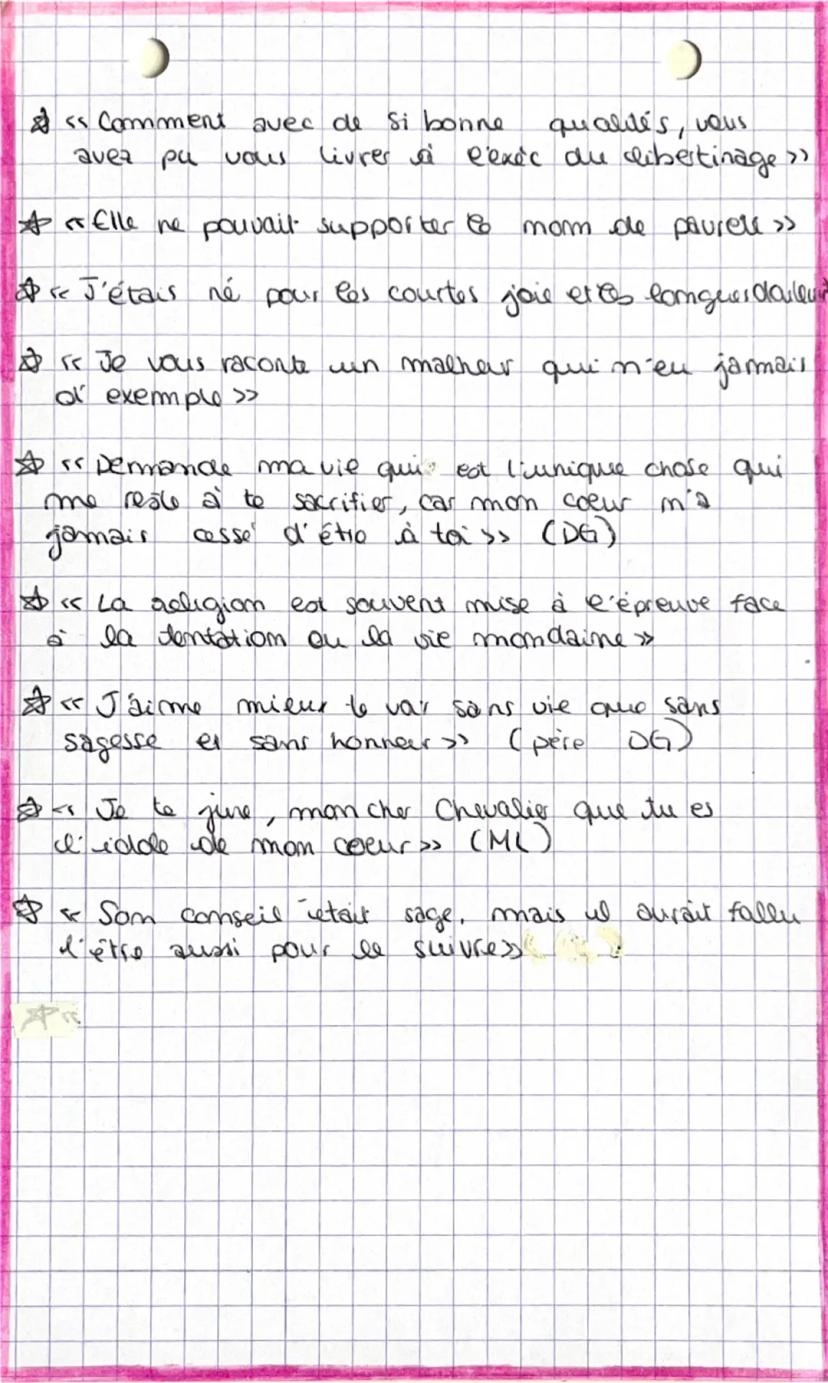 ☆ << Comment avec de si bonne qualités, vous
avez pu vous livrer à l'excèc du libertinage >>
☆ << Elle ne pouvait supporter le nom de pauvreté >>
☆ << J'étais né pour les courtes joie et les longues douleurs
☆ << Je vous raconte un malheur qui n'eu jamais
d'exemple >>
☆ << Demande ma vie qui est l'unique chose qui
me reste à te sacrifier, car mon coeur n'a
jamais cessé d'être à toi >> (DG)
☆ << La religion est souvent mise à l'épreuve face
à la tentation ou la vie mondaine >>
☆ << J'aime mieux te voir sans vie que sans
sagesse et sans honneur >> (père DG)
☆ << Je te jure, mon cher Chevalier que tu es
l'idole de mon coeur >> (ML)
☆ << Son conseil était sage, mais il aurait fallu
l'être aussi pour le suivre >>
☆ <<